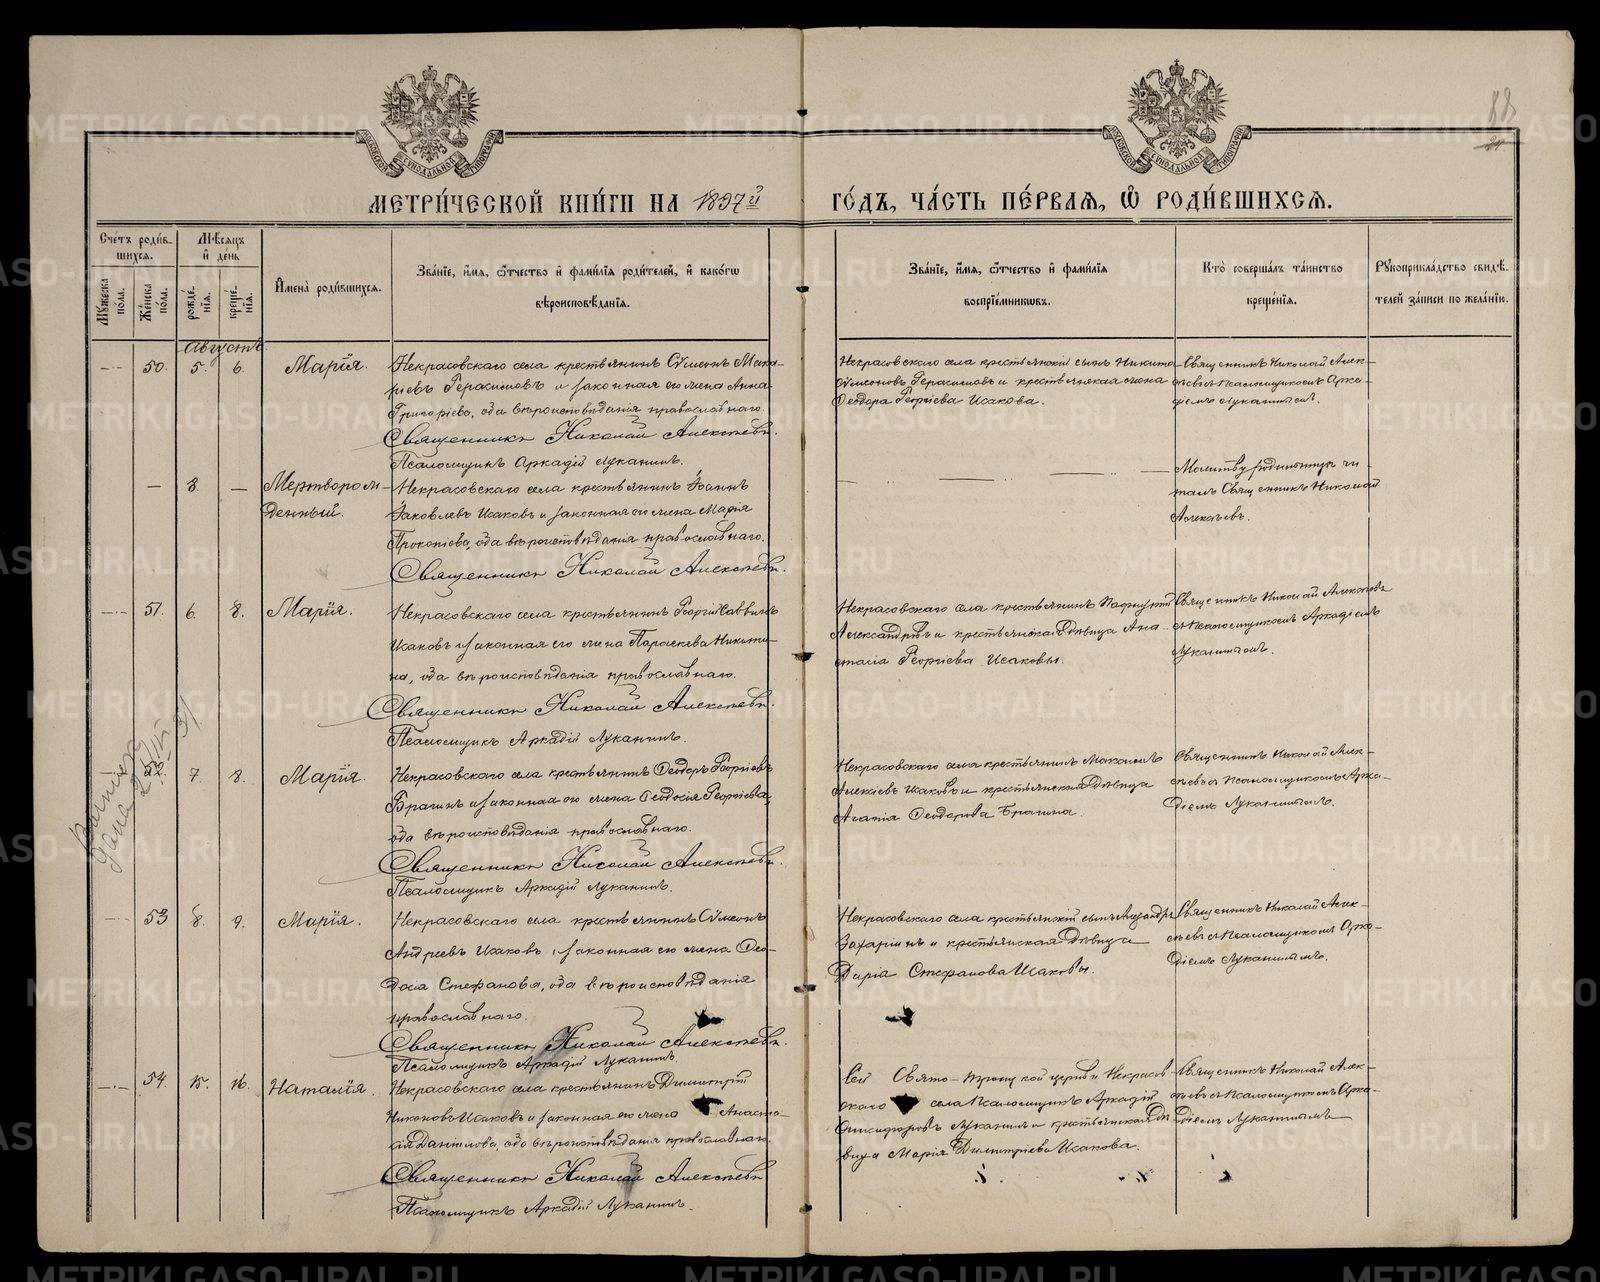 МЕТРИ́ЧЕСКОЙ КНИ́ГИ НА 1897й ГО́ДЪ, ЧА́СТЬ ПЕ́РВАЯ, Ѡ РОДИ́ВШИХСЯ.
88
Сче́тъ роди́в-
шихся.
Мѣ́сяцъ
и де́нь
Му́жеска по́ла.
Же́нска по́ла.
рожде́-нія.
креще́-нія.
И́мена̀ роди́вшихся.
Зва́ніе, и́мя, о́тчество и фами́лія роди́телей, и како́гѡ
вѣроисповѣ́данія.
Зва́ніе, и́мя, о́тчество и фами́лія
воспріе́мниковъ.
Кто̀ соверша́лъ та́инство
креще́нія.
Рꙋкоприкла́дство свидѣ́-
телей за́писи по жела́нію.
Августъ
50. 5. 6. Марія.
Некрасовскаго села крестьянинъ Сѵмеонъ Мака-
ріевъ Герасимовъ и законная его жена Анна
Григоріева, оба вѣроисповѣданія православнаго.
Священникъ Николай Алексѣевъ.
Псаломщикъ Аркадій Луканинъ.
Некрасовскаго села крестьянскій сынъ Никита
Сѵмеоновъ Герасимовъ и крестьянская жена
Ѳеодора Георгіева Исакова.
Священникъ Николай Алек-
сѣевъ съ Псаломщикомъ Арка-
діемъ Луканинымъ.
— 8. — Мертворож-
денный.
Некрасовскаго села крестьянинъ Іоаннъ
Іаковлевъ Исаковъ и законная его жена Марія
Прокопіева, оба вѣроисповѣданія православнаго.
Священникъ Николай Алексѣевъ.
Молитву родильницѣ чи-
талъ Священникъ Николай
Алексѣевъ.
51. 6. 8. Марія.
Некрасовскаго села крестьянинъ Георгій Саввинъ
Исаковъ и законная его жена Параскева Никити-
на, оба вѣроисповѣданія православнаго.
Священникъ Николай Алексѣевъ.
Псаломщикъ Аркадій Луканинъ.
Некрасовскаго села крестьянинъ Пафнутій
Александровъ и крестьянская дѣвица Ана-
стасія Георгіева Исаковы.
Священникъ Николай Алексѣевъ
съ Псаломщикомъ Аркадіемъ
Луканинымъ.
52. 7. 8. Марія.
Некрасовскаго села крестьянинъ Ѳеодоръ Георгіевъ
Брагинъ и законная его жена Ѳеодосія Георгіева,
оба вѣроисповѣданія православнаго.
Священникъ Николай Алексѣевъ.
Псаломщикъ Аркадій Луканинъ.
Некрасовскаго села крестьянинъ Максимъ
Алексіевъ Исаковъ и крестьянская дѣвица
Агапія Ѳеодорова Брагина.
Священникъ Николай Алек-
сѣевъ съ Псаломщикомъ Арка-
діемъ Луканинымъ.
53 8. 9. Марія.
Некрасовскаго села крестьянинъ Сѵмеонъ
Андреевъ Исаковъ и законная его жена Ѳео-
досія Стефанова, оба вѣроисповѣданія
православнаго.
Священникъ Николай Алексѣевъ.
Псаломщикъ Аркадій Луканинъ.
Некрасовскаго села крестьянскій сынъ Александръ
Захаринъ и крестьянская дѣвица
Дарія Стефанова Исаковы.
Священникъ Николай Алек-
сѣевъ съ Псаломщикомъ Арка-
діемъ Луканинымъ.
54. 15. 16. Наталія.
Некрасовскаго села крестьянинъ Димитрій
Никоновъ Исаковъ и законная его жена Анаста-
сія Данилова, оба вѣроисповѣданія православнаго.
Священникъ Николай Алексѣевъ
Псаломщикъ Аркадій Луканинъ.
Сей Свято-Троицкой церкви Некрасов-
скаго села Псаломщикъ Аркадій
Онисифоровъ Луканинъ и крестьянская дѣ-
вица Марія Димитріева Исакова.
Священникъ Николай Алек-
сѣевъ съ Псаломщикомъ Арка-
діемъ Луканинымъ
METRIKI.GASO-URAL.RU